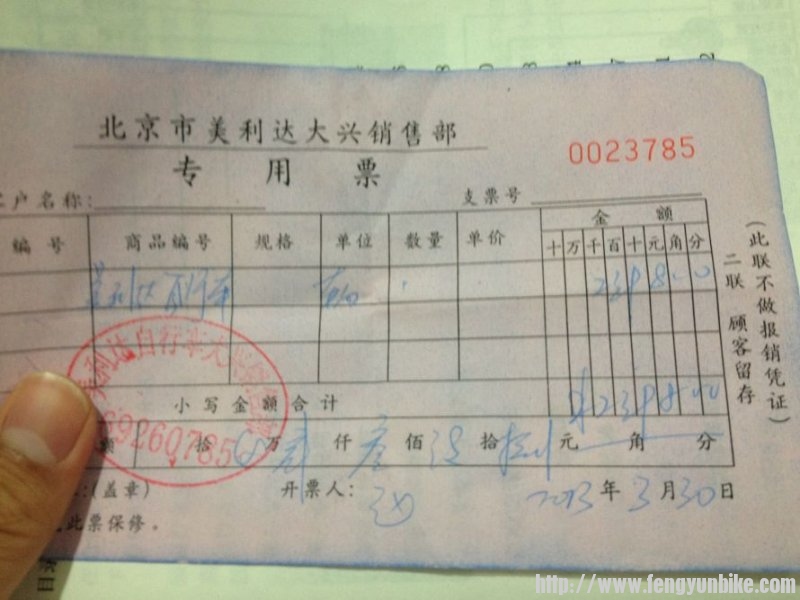 北京市美利达大兴销售部
专用票
0023785
户名称:
支票号
编号 商品编号 规格 单位 数量 单价 金额
十万千百十元角分
美利达自行车 辆 2398.00
小写金额合计 ¥2398.00
拾 万 仟 佰 拾 元 角 分
(盖章) 开票人: 2013年3月30日
此票保修。
二联 顾客留存
(此联不做报销凭证)
美利达自行车大兴
69260785
http://www.fengyunbike.com